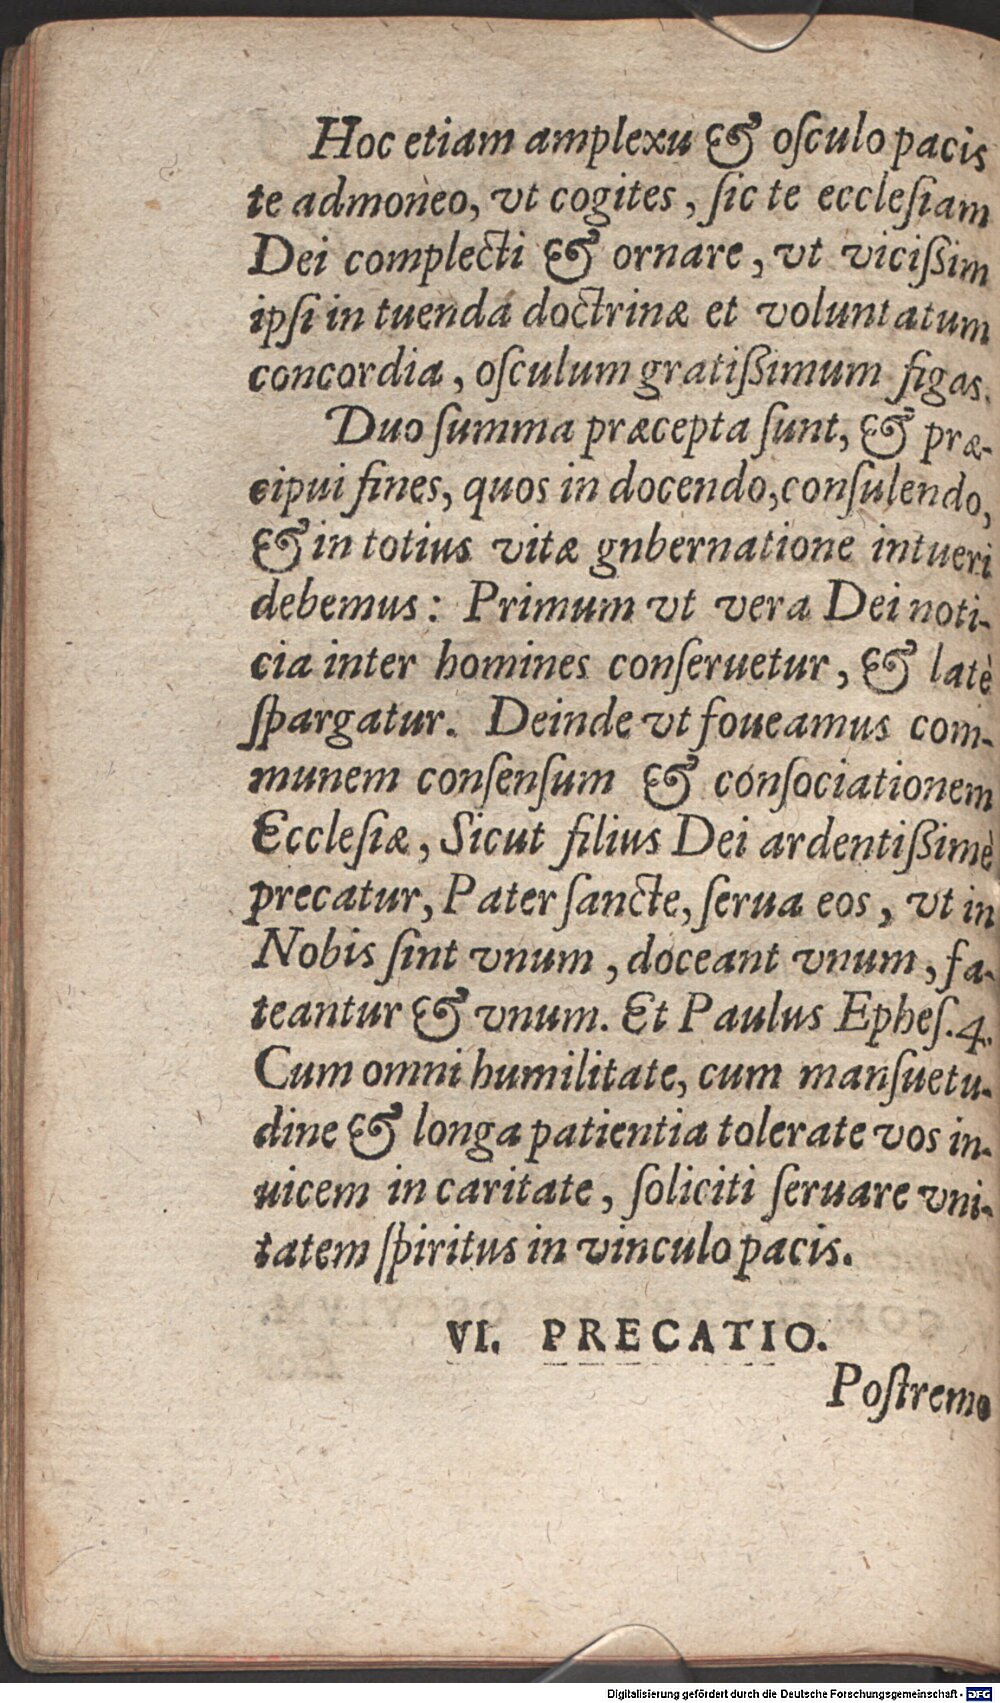 Hoc etiam amplexu & oſculo pacis
te admoneo, vt cogites, ſic te eccleſiam
Dei complecti & ornare, vt viciſſim
ipſi in tuenda doctrinæ et voluntatum
concordia, oſculum gratiſſimum figas.
Duo ſumma præcepta ſunt, & præ-
cipui fines, quos in docendo, conſulendo,
& in totius vitæ gnbernatione intueri
debemus: Primum vt vera Dei noti-
cia inter homines conſeruetur, & latè
ſpargatur. Deinde vt foueamus com-
munem conſenſum & conſociationem
Eccleſiæ, Sicut filius Dei ardentiſſimè
precatur, Pater ſancte, ſerua eos, vt in
Nobis ſint vnum, doceant vnum, fa-
teantur & vnum. Et Paulus Epheſ. 4.
Cum omni humilitate, cum manſuetu-
dine & longa patientia tolerate vos in-
uicem in caritate, ſoliciti ſeruare vni-
tatem ſpiritus in vinculo pacis.
VI. PRECATIO.
Poſtremo
Digitalisierung gefördert durch die Deutsche Forschungsgemeinschaft - DFG